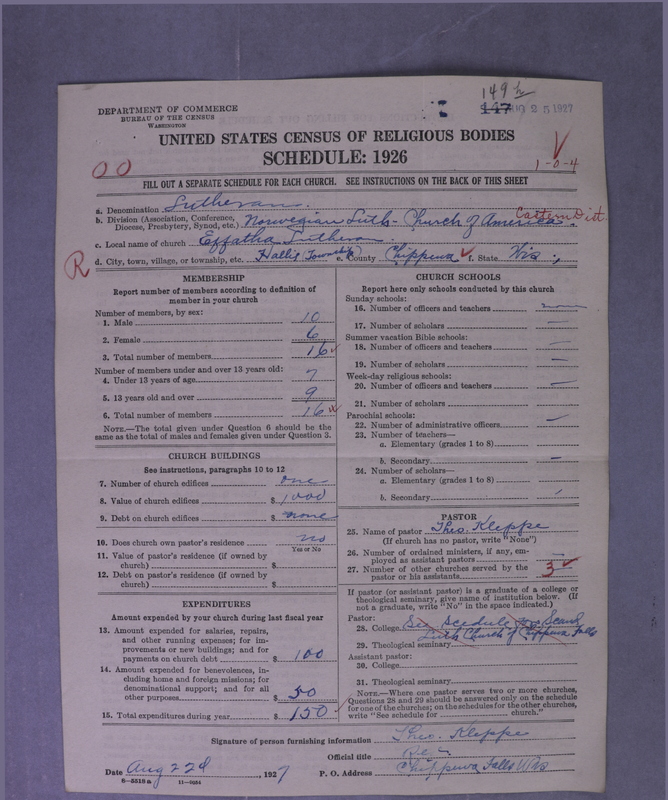 149
147 AUG 25 1927
DEPARTMENT OF COMMERCE
BUREAU OF THE CENSUS
WASHINGTON
UNITED STATES CENSUS OF RELIGIOUS BODIES
SCHEDULE: 1926
00
1-0-4
FILL OUT A SEPARATE SCHEDULE FOR EACH CHURCH. SEE INSTRUCTIONS ON THE BACK OF THIS SHEET
a. Denomination Lutheran.
b. Division (Association, Conference, Diocese, Presbytery, Synod, etc.) Norwegian Luth-Church of America. Eastern Dist.
c. Local name of church Effatha Lutheran.
R
d. City, town, village, or township, etc. Hallie (Township) e. County Chippewa f. State Wis.,
MEMBERSHIP
Report number of members according to definition of
member in your church
Number of members, by sex:
1. Male 10
2. Female 6
3. Total number of members 16
Number of members under and over 13 years old:
4. Under 13 years of age 7
5. 13 years old and over 9
6. Total number of members 16
NOTE.—The total given under Question 6 should be the
same as the total of males and females given under Question 3.
CHURCH BUILDINGS
See instructions, paragraphs 10 to 12
7. Number of church edifices one
8. Value of church edifices $1000
9. Debt on church edifices $none
10. Does church own pastor's residence no
Yes or No
11. Value of pastor's residence (if owned by
church) $
12. Debt on pastor's residence (if owned by
church) $
EXPENDITURES
Amount expended by your church during last fiscal year
13. Amount expended for salaries, repairs,
and other running expenses; for im-
provements or new buildings; and for
payments on church debt $100
14. Amount expended for benevolences, in-
cluding home and foreign missions; for
denominational support; and for all
other purposes $50
15. Total expenditures during year $150
CHURCH SCHOOLS
Report here only schools conducted by this church
Sunday schools:
16. Number of officers and teachers none
17. Number of scholars —
Summer vacation Bible schools:
18. Number of officers and teachers —
19. Number of scholars —
Week-day religious schools:
20. Number of officers and teachers —
21. Number of scholars
Parochial schools:
22. Number of administrative officers —
23. Number of teachers—
a. Elementary (grades 1 to 8)
b. Secondary —
24. Number of scholars—
a. Elementary (grades 1 to 8)
b. Secondary
PASTOR
25. Name of pastor Theo. Kleppe
(If church has no pastor, write "None")
26. Number of ordained ministers, if any, em-
ployed as assistant pastors —
27. Number of other churches served by the
pastor or his assistants 3
If pastor (or assistant pastor) is a graduate of a college or
theological seminary, give name of institution below. (If
not a graduate, write "No" in the space indicated.)
Pastor:
28. College See Scedule for Scand
Luth Church of Chippewa Falls
29. Theological seminary
Assistant pastor:
30. College
31. Theological seminary
NOTE.—Where one pastor serves two or more churches,
Questions 28 and 29 should be answered only on the schedule
for one of the churches; on the schedules for the other churches,
write "See schedule for church."
Signature of person furnishing information Theo. Kleppe
Official title
Date Aug 22d, 1927 P. O. Address Chippewa Falls Wis
8—5518a 11—9034